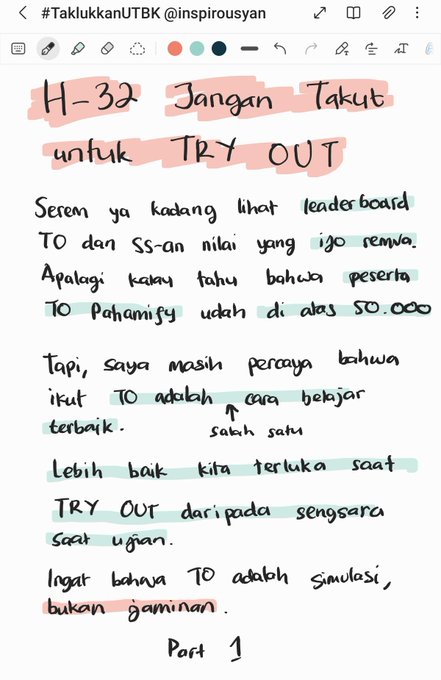 #TaklukkanUTBK @inspirousyan
H-32 Jangan Takut
untuk TRY OUT
Serem ya kadang lihat leaderboard
TO dan SS-an nilai yang ijo semua.
Apalagi kalau tahu bahwa peserta
TO Pahamify udah di atas 50.000
Tapi, saya masih percaya bahwa
ikut TO adalah cara belajar
terbaik.
salah satu
Lebih baik kita terluka saat
TRY OUT daripada sengsara
saat ujian.
Ingat bahwa TO adalah simulasi,
bukan jaminan.
Part 1